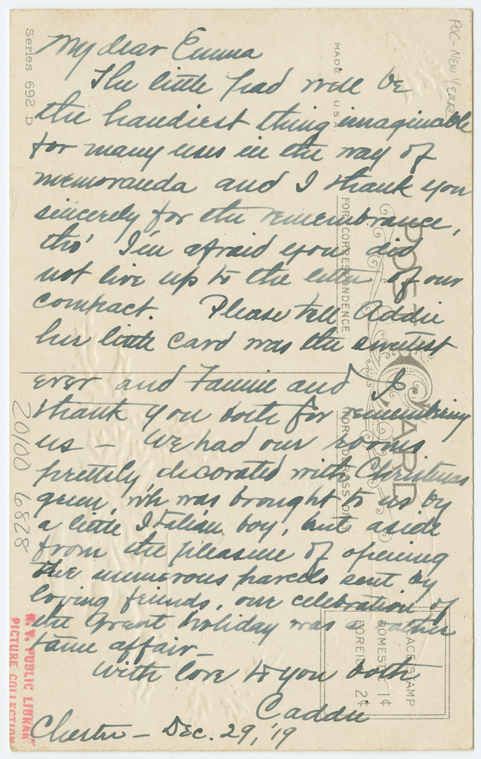 My dear Emma
The little pad will be
the handiest thing imaginable
for many uses in the way of
memoranda and I thank you
sincerely for the remembrance,
tho' I'm afraid you did
not live up to the letter of our
compact. Please tell Addie
her little card was the sweetest
ever and Fannie and I
thank you both for remembering
us — We had our rooms
prettily decorated with Christmas
green, wh. was brought to us by
a little Italian boy, but aside
from the pleasure of opening
the numerous parcels sent by
loving friends, our celebration of
the great holiday was a rather
tame affair —
With love to you both
Caddie
Chester — Dec. 29, '19
Series 692 D
MADE U.S.A.
POC - NEW YEAR
POST CARD
FOR CORRESPONDENCE
FOR ADDRESS ON
PLACE STAMP
DOMESTIC 1¢
FOREIGN 2¢
20100 6828
N.Y. PUBLIC LIBRARY
PICTURE COLLECTION